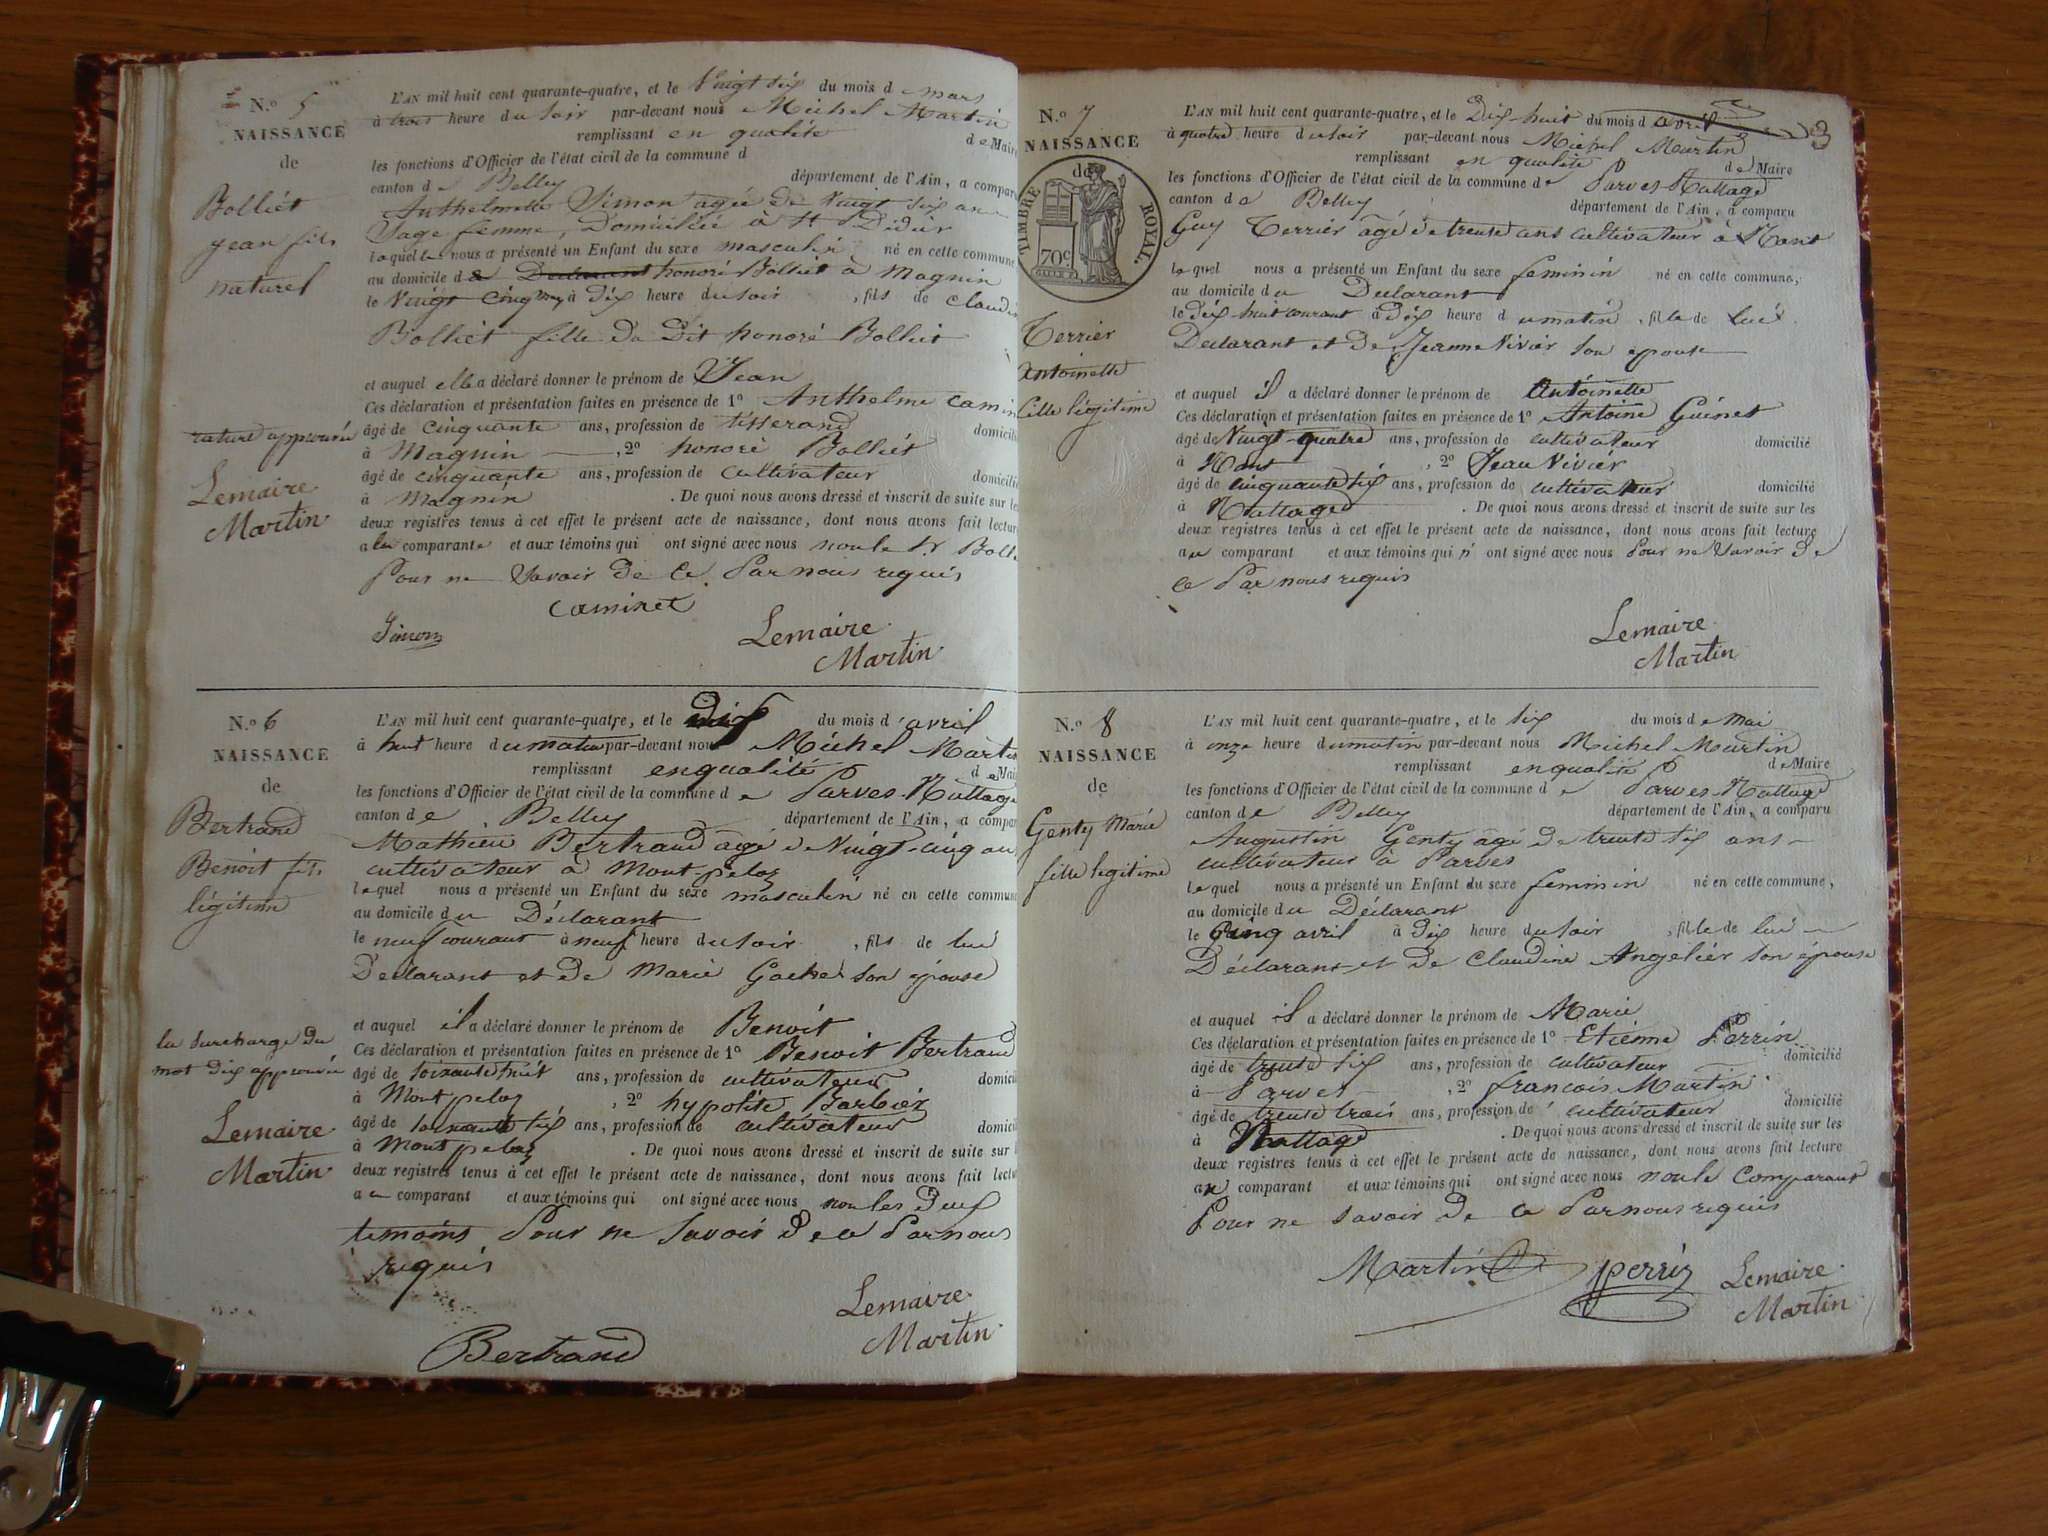 N.o 5
NAISSANCE
de
Bolliet
jean fils
naturel
rature approuvée
Lemaire
Martin
L'AN mil huit cent quarante-quatre, et le Vingt six du mois d e mars
à trois heure du soir par-devant nous Michel Martin
remplissant en qualité d e Maire
les fonctions d'Officier de l'état civil de la commune d
canton d e Belley département de l'Ain, a comparu
Anthelmette Simon agée de Vingt six ans
Sage femme, Domiciliée à St Didier
laquelle nous a présenté un Enfant du sexe masculin né en cette commune
au domicile d e Declarant honoré Bolliet à Magnin
le Vingt Cinq à Dix heure du soir , fils de Claudine
Bolliet fille du Dit honoré Bolliet
et auquel elle a déclaré donner le prénom de Jean
Ces déclaration et présentation faites en présence de 1o Anthelme Camin
âgé de cinquante ans, profession de tisserand domicilié
à Magnin , 2o honoré Bolliet
âgé de cinquante ans, profession de cultivateur domicilié
à Magnin . De quoi nous avons dressé et inscrit de suite sur les
deux registres tenus à cet effet le présent acte de naissance, dont nous avons fait lecture
a la comparante et aux témoins qui ont signé avec nous non le Sr Bolli
Pour ne Savoir De Ce Par nous requis
caminet
Simon
Lemaire
Martin
N.o 6
NAISSANCE
de
Bertrand
Benoit fils
légitime
la surcharge du
mot Dix approuvée
Lemaire
Martin
L'AN mil huit cent quarante-quatre, et le Dix du mois d'avril
à huit heure du matin par-devant nous Michel Martin
remplissant en qualité d e Maire
les fonctions d'Officier de l'état civil de la commune d e Parves-Nattage
canton d e Belley département de l'Ain, a comparu
Mathieu Bertrand agé de Vingt-cinq ans
cultivateur à Mont-pelaz
lequel nous a présenté un Enfant du sexe masculin né en cette commune
au domicile du Déclarant
le neuf courant à neuf heure du soir , fils de lui
Declarant et de Marie Gache son épouse
et auquel il a déclaré donner le prénom de Benoit
Ces déclaration et présentation faites en présence de 1o Benoit Bertrand
âgé de soixante huit ans, profession de cultivateur domicilié
à Mont pelaz , 2o hypolite Barbier
âgé de soixante six ans, profession de cultivateur domicilié
à Mont pelaz . De quoi nous avons dressé et inscrit de suite sur les
deux registres tenus à cet effet le présent acte de naissance, dont nous avons fait lecture
au comparant et aux témoins qui ont signé avec nous non les Deux
temoins Pour ne Savoir De Ce Par nous
requis
Bertrand
Lemaire
Martin
3
N.o 7
NAISSANCE
de
TIMBRE ROYAL.
70c.
Terrier
Antoinette
fille légitime
L'AN mil huit cent quarante-quatre, et le Dix-huit du mois d'avril
à quatre heure du soir par-devant nous Michel Martin
remplissant en qualité d e Maire
les fonctions d'Officier de l'état civil de la commune d e Parves-Nattage
canton d e Belley département de l'Ain, a comparu
Guy Terrier âgé de trente ans cultivateur à Nant
lequel nous a présenté un Enfant du sexe feminin né en cette commune,
au domicile du Declarant
le dix-huit courant à dix heure du matin , fille de lui
Declarant et de Jeanne Vivier son epouse
et auquel il a déclaré donner le prénom de Antoinette
Ces déclaration et présentation faites en présence de 1o Antoine Guinet
âgé de Vingt-quatre ans, profession de cultivateur domicilié
à Nant , 2o Jean Vivier
âgé de cinquante six ans, profession de cultivateur domicilié
à Nattage . De quoi nous avons dressé et inscrit de suite sur les
deux registres tenus à cet effet le présent acte de naissance, dont nous avons fait lecture
au comparant et aux témoins qui n' ont signé avec nous Pour ne Savoir De
Ce Par nous requis
Lemaire
Martin
N.o 8
NAISSANCE
de
Genty Marie
fille legitime
L'AN mil huit cent quarante-quatre, et le six du mois d e Mai
à onze heure du matin par-devant nous Michel Martin
remplissant en qualité d e Maire
les fonctions d'Officier de l'état civil de la commune d e Parves-Nattage
canton d e Belley département de l'Ain, a comparu
Augustin Genty âgé de trente six ans
cultivateur à Parves
lequel nous a présenté un Enfant du sexe feminin né en cette commune,
au domicile du Déclarant
le Cinq avril à Dix heure du soir , fille de lui
Déclarant et de Claudine Angelier son épouse
et auquel il a déclaré donner le prénom de Marie
Ces déclaration et présentation faites en présence de 1o Etienne Perrin
âgé de trente six ans, profession de cultivateur domicilié
à Parves , 2o francois Martin
âgé de trente trois ans, profession de cultivateur domicilié
à Nattage . De quoi nous avons dressé et inscrit de suite sur les
deux registres tenus à cet effet le présent acte de naissance, dont nous avons fait lecture
au comparant et aux témoins qui ont signé avec nous non le Comparant
Pour ne savoir De Ce Par nous requis
Martin
perrin
Lemaire
Martin